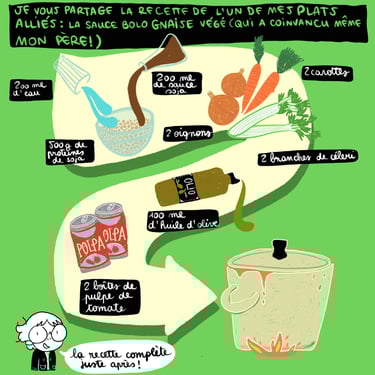 JE VOUS PARTAGE LA RECETTE DE L'UN DE MES PLATS
ALLIÉS : LA SAUCE BOLOGNAISE VÉGÉ (QUI A COINVANCU MÊME
MON PÈRE!)
200 ml
d'eau
200 ml
de sauce
soja
2 carottes
500g de
protéines
de soja
2 oignons
2 branches de céleri
OLIO
100 ml
d'huile d'olive
POLPA
OLPA
2 boîtes de
pulpe de
tomate
la recette complète
juste après!